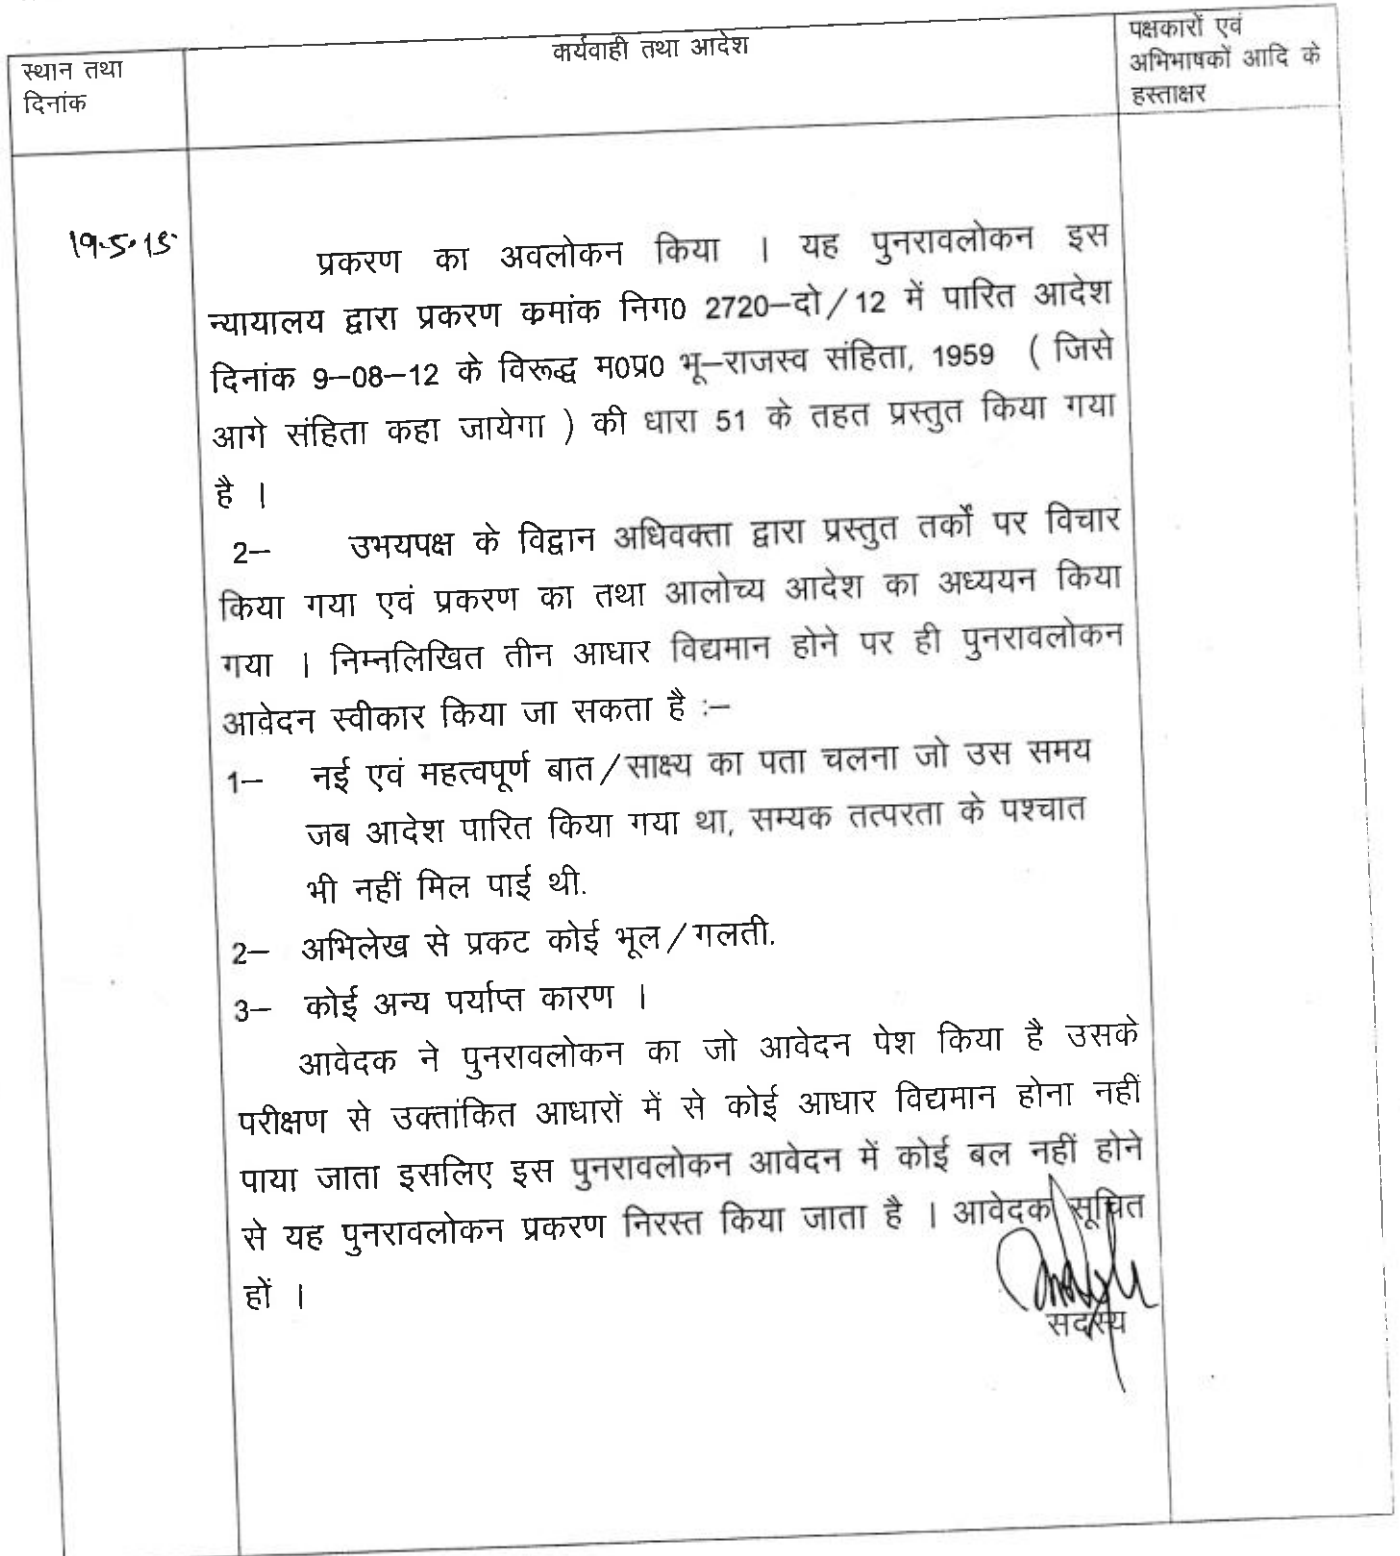 स्थान तथा
दिनांक
कार्यवाही तथा आदेश
पक्षकारों एवं
अभिभाषकों आदि के
हस्ताक्षर
19-5-15
प्रकरण का अवलोकन किया । यह पुनरावलोकन इस
न्यायालय द्वारा प्रकरण कमांक निग0 2720–दो/12 में पारित आदेश
दिनांक 9–08–12 के विरूद्ध म0प्र0 भू–राजस्व संहिता, 1959 ( जिसे
आगे संहिता कहा जायेगा ) की धारा 51 के तहत प्रस्तुत किया गया
है ।
2– उभयपक्ष के विद्वान अधिवक्ता द्वारा प्रस्तुत तर्कों पर विचार
किया गया एवं प्रकरण का तथा आलोच्य आदेश का अध्ययन किया
गया । निम्नलिखित तीन आधार विद्यमान होने पर ही पुनरावलोकन
आवेदन स्वीकार किया जा सकता है :–
1– नई एवं महत्वपूर्ण बात/साक्ष्य का पता चलना जो उस समय
जब आदेश पारित किया गया था, सम्यक तत्परता के पश्चात
भी नहीं मिल पाई थी.
2– अभिलेख से प्रकट कोई भूल/गलती.
3– कोई अन्य पर्याप्त कारण ।
आवेदक ने पुनरावलोकन का जो आवेदन पेश किया है उसके
परीक्षण से उक्तांकित आधारों में से कोई आधार विद्यमान होना नहीं
पाया जाता इसलिए इस पुनरावलोकन आवेदन में कोई बल नहीं होने
से यह पुनरावलोकन प्रकरण निरस्त किया जाता है । आवेदक सूचित
हों ।
सदस्य